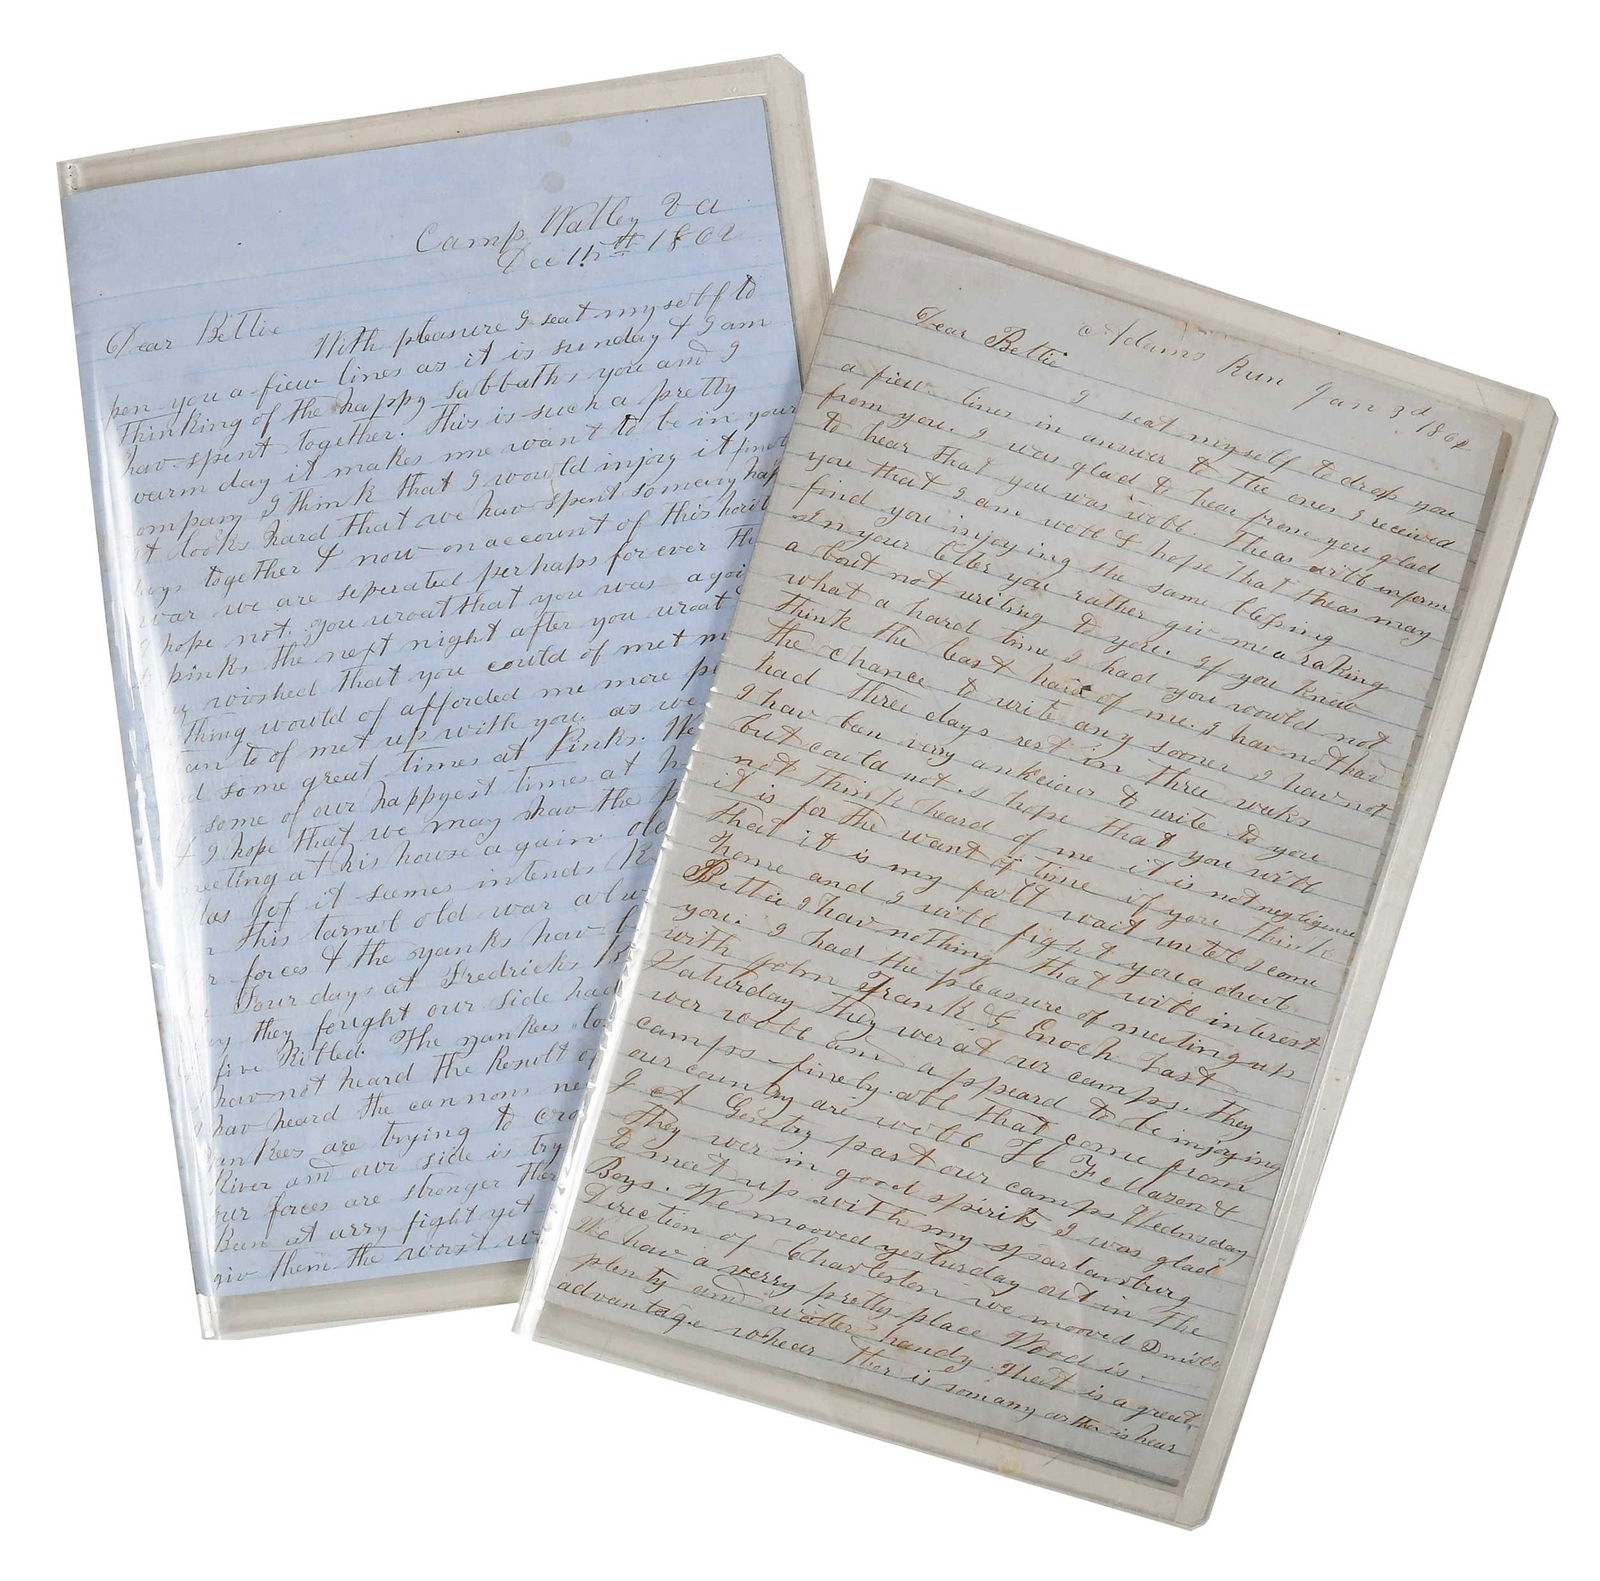 Camp Watley Va
Dec 15th 1862
Dear Bettie
With pleasure I seat myself to
pen you a fiew lines as it is sunday & I am
Thinking of the happy Sabbaths you and I
hav spent together. This is such a pretty
warm day it makes me want to be in your
ompany I think that I would injoy it fine
it looks hard that we hav spent so many hap
days together & now on account of this horib
war we are seperated perhaps forever tho
I hope not. you wroat that you was a goi
pinks the next night after you wroat
wished that you could of met m
thing would of afforded me more pl
an to of met up with you. as we
d some great times at Pinks. We
some of our happyest times at h
& I hope that we may hav the p
meeting at his house a gain. old
Jef it seames intends
this tarnel old war alw
r forces & the yanks hav b
Four days at Fredricks B
they fought our side had
five Killed. The yankees lo
hav not heard the Result of
hav heard the cannons ne
yankees are trying to cro
River and our side is try
our forces are stronger then
Ben at arry fight yet
giv them the worst w
Adams Run Jan 3d 186
Dear Bettie
I seat myself to drop you
a fiew lines in answer to the ones I received
from you. I was glad to hear from you glad
to hear that you was well. Theas will inform
you that I am well & hope that theas may
find you injoying the same blessing
In your letter you rather giv me a raking
a bout not writing to you. if you knew
what a hard time I had you would not
think the least hard of me. I hav not had
the chance to write any sooner I hav not
had three days rest in three weeks
I hav ben very ankcious to write to you
but could not. I hope that you will
not think heard of me it is not negligence
it is for the want of time if you think
that it is my fallt wait until I come
home and I will fight you a duel.
Bettie I hav nothing that will interest
you. I had the pleasure of meeting up
with John Frank & Enoch Last
Saturday they wer at our camps. they
wer well am appeard to be injoying
camps finely. all that come from
our country are well
J A Gentry past our camps Wednsday
They wer in good spirits I was glad
to meet up with my spartanburg
Boys. We mooved yesturday out in the
Direction of Charleston we mooved 2 miles
We hav a verry pretty place Wood is
plenty and watter handy. that is a great
advantage whear ther is so many as ther is hear